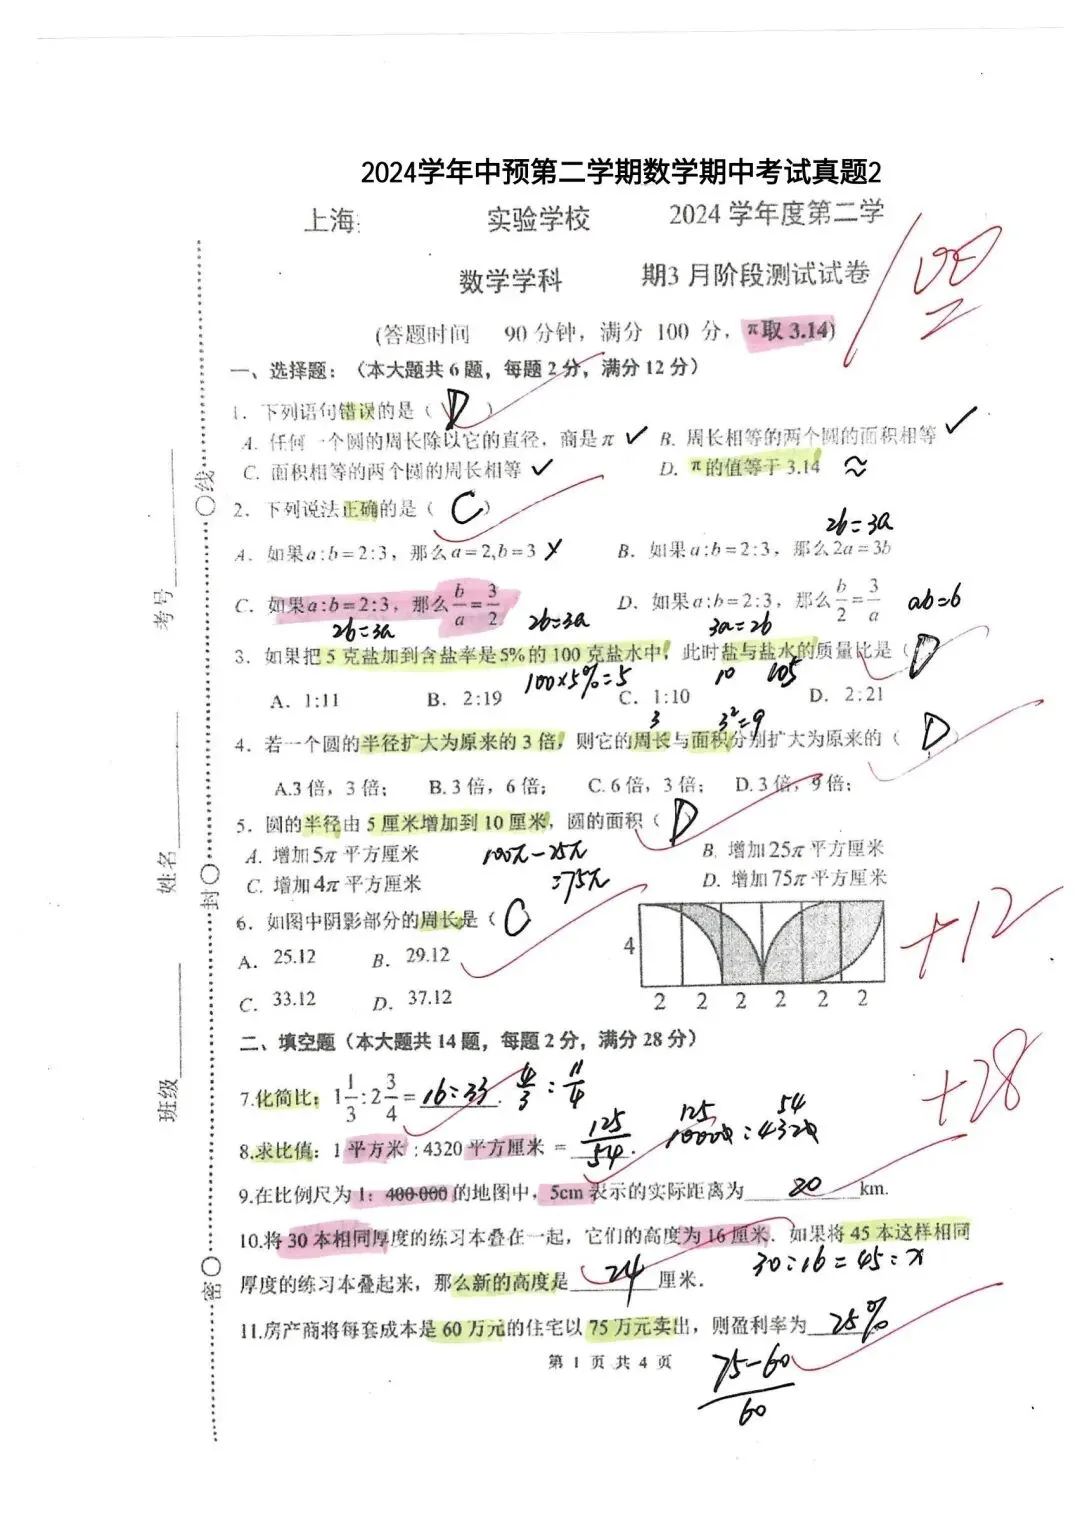 2024学年中预第二学期数学期中考试真题2
上海 实验学校 2024学年度第二学
数学学科 期3月阶段测试试卷
(答题时间 90分钟，满分 100 分，π取 3.14)
一、选择题：（本大题共6题，每题2分，满分12分）
1. 下列语句错误的是（ D ）
A. 任何一个圆的周长除以它的直径，商是π ✓ B. 周长相等的两个圆的面积相等 ✓
C. 面积相等的两个圆的周长相等 ✓ D. π的值等于3.14 ≈
2. 下列说法正确的是（ C ）
2b=3a
A. 如果a:b=2:3，那么a=2,b=3 × B. 如果a:b=2:3，那么2a=3b
C. 如果a:b=2:3，那么b/a=3/2 D. 如果a:b=2:3，那么b/2=3/a ab=6
2b=3a 2b=3a 3a=2b
3. 如果把5克盐加到含盐率是5%的100克盐水中，此时盐与盐水的质量比是（ D
100×5%=5 10 105
A. 1:11 B. 2:19 C. 1:10 D. 2:21
3 3²=9
4. 若一个圆的半径扩大为原来的3倍，则它的周长与面积分别扩大为原来的（ D ）
A.3倍，3倍； B.3倍，6倍； C.6倍，3倍； D.3倍，9倍；
5. 圆的半径由5厘米增加到10厘米，圆的面积（ D
A. 增加5π平方厘米 100π-25π B. 增加25π平方厘米
C. 增加4π平方厘米 =75π D. 增加75π平方厘米
6. 如图中阴影部分的周长是（ C
A. 25.12 B. 29.12
C. 33.12 D. 37.12
4
2 2 2 2 2 2
+12
二、填空题（本大题共14题，每题2分，满分28分）
+28
7.化简比：1 1/3:2 3/4= 16:33 . 4/3:11/4
8.求比值：1平方米:4320平方厘米= 125/54 . 10000:4320
125 54
9.在比例尺为1：400 000的地图中，5cm表示的实际距离为 20 km.
10.将30本相同厚度的练习本叠在一起，它们的高度为16厘米．如果将45本这样相同
30:16=45:x
厚度的练习本叠起来，那么新的高度是 24 厘米．
11.房产商将每套成本是60万元的住宅以75万元卖出，则盈利率为 25%
第 1 页 共 4 页
75-60/60
考号
姓名
班级
线
封
密